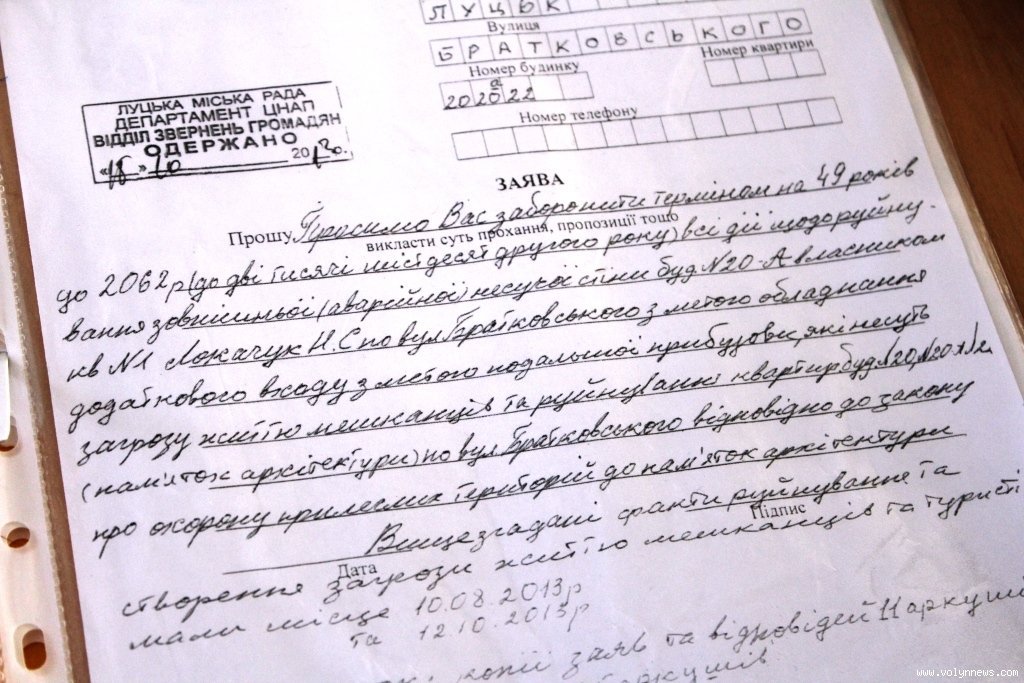 ЛУЦЬК
Вулиця
БРАТКОВСЬКОГО
Номер будинку
Номер квартири
20 20а 22
Номер телефону
ЛУЦЬКА МІСЬКА РАДА
ДЕПАРТАМЕНТ ЦНАП
ВІДДІЛ ЗВЕРНЕНЬ ГРОМАДЯН
ОДЕРЖАНО
ЗАЯВА
Прошу, Просимо Вас заборонити терміном на 49 років
викласти суть прохання, пропозиції тощо
до 2062р (до дві тисячі шістдесят другого року) всі дії щодо руйну-
вання зовнішньої (аварійної) несучої стіни буд №20-А власником
кв №1 Локачук Н.С по вул Братковського з метою обладнання
додаткового входу з метою подальшої прибудови, які несуть
загрозу життю мешканців та руйнуванні квартир буд №20, №20-А
(пам'яток архітектури) по вул Братковського відповідно до закону
про охорону прилеглих територій до пам'яток архітектури
Вищезгадані факти руйнування та
Підпис
Дата
створення загрози життю мешканців та туристі
мали місце 10.08.2013р
та 12.10.2013р
копії заяв та відповідей 11 аркуші
аркушів
www.volynnews.com